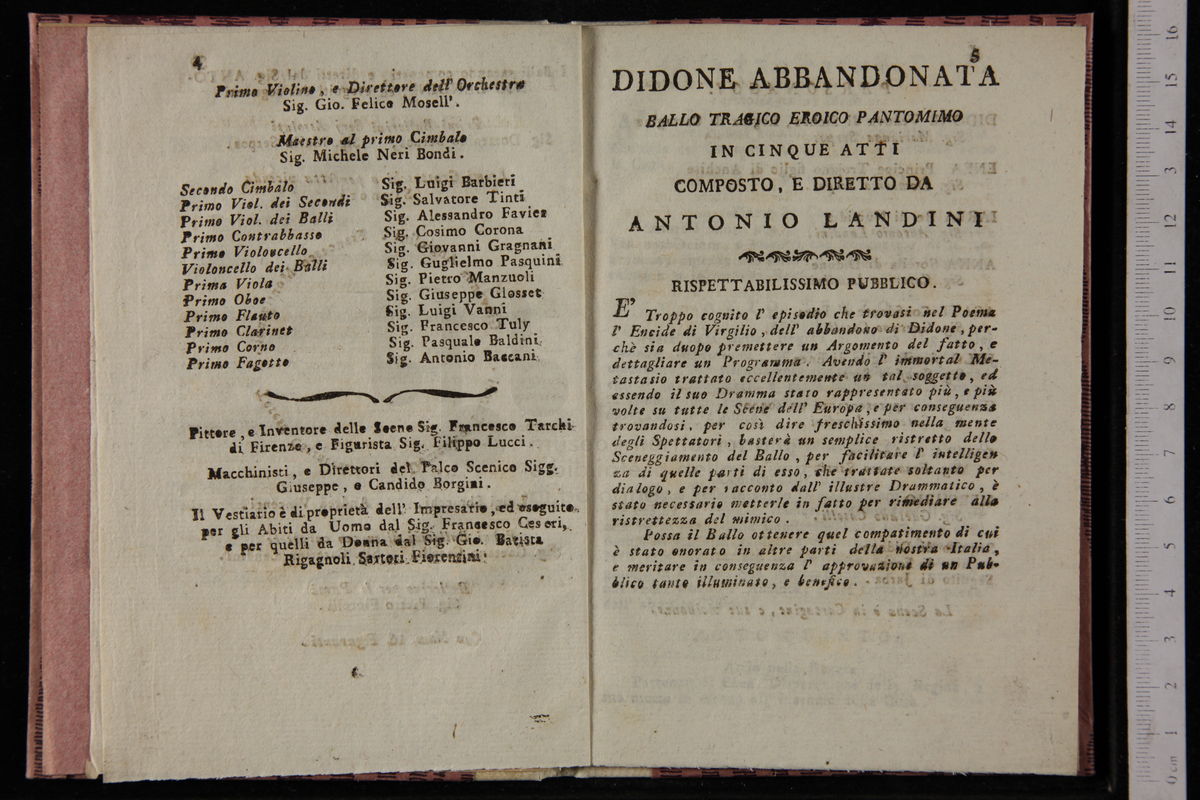 4
Primo Violino, e Direttore dell' Orchestra
Sig. Gio. Felice Mosell'.
Maestro al primo Cimbalo
Sig. Michele Neri Bondi.
Secondo Cimbalo Sig. Luigi Barbieri
Primo Viol. dei Secondi Sig. Salvatore Tinti
Primo Viol. dei Balli Sig. Alessandro Favier
Primo Contrabbasso Sig. Cosimo Corona
Primo Violoncello Sig. Giovanni Gragnani
Violoncello dei Balli Sig. Guglielmo Pasquini
Prima Viola Sig. Pietro Manzuoli
Primo Oboe Sig. Giuseppe Closset
Primo Flauto Sig. Luigi Vanni
Primo Clarinet Sig. Francesco Tuly
Primo Corno Sig. Pasquale Baldini
Primo Fagotto Sig. Antonio Baccani
Pittore, e Inventore delle Scene Sig. Francesco Tarchi
di Firenze, e Figurista Sig. Filippo Lucci.
Macchinisti, e Direttori del Palco Scenico Sigg.
Giuseppe, e Candido Borgini.
Il Vestiario è di proprietà dell' Impresario, ed eseguito
per gli Abiti da Uomo dal Sig. Francesco Ceseri,
e per quelli da Donna dal Sig. Gio. Batista
Rigagnoli Sartori Fiorentini.
5
DIDONE ABBANDONATA
BALLO TRAGICO EROICO PANTOMIMO
IN CINQUE ATTI
COMPOSTO, E DIRETTO DA
ANTONIO LANDINI
RISPETTABILISSIMO PUBBLICO.
E' Troppo cognito l' episodio che trovasi nel Poema
l' Eneide di Virgilio, dell' abbandono di Didone, per-
chè sia duopo premettere un Argomento del fatto, e
dettagliare un Programma. Avendo l' immortal Me-
tastasio trattato eccellentemente un tal soggetto, ed
essendo il suo Dramma stato rappresentato più, e più
volte su tutte le Scene dell' Europa, e per conseguenza
trovandosi, per così dire freschissimo nella mente
degli Spettatori, basterà un semplice ristretto dello
Sceneggiamento del Ballo, per facilitare l' intelligen
za di quelle parti di esso, che trattate soltanto per
dialogo, e per racconto dall' illustre Drammatico, è
stato necessario metterle in fatto per rimediare alla
ristrettezza del mimico.
Possa il Ballo ottenere quel compatimento di cui
è stato onorato in altre parti della nostra Italia,
e meritare in conseguenza l' approvazione di un Pub-
blico tanto illuminato, e benefico.
16
15
14
13
12
11
10
9
8
7
6
5
4
3
2
1
0 cm